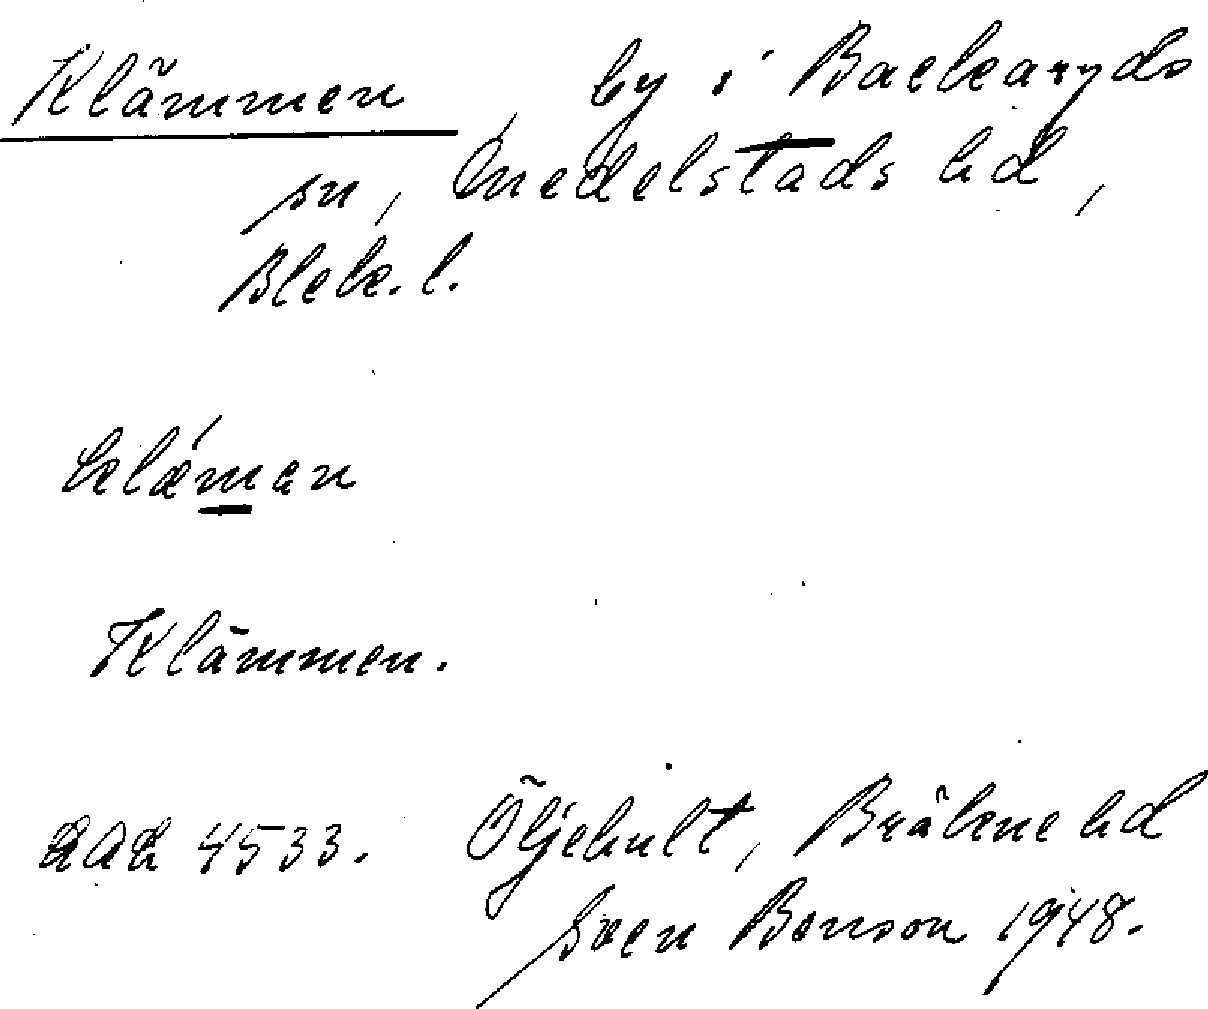 Klämmen, by i Backaryds
sn, Medelstads hd,
Blek. l.
klǽman
Klämmen.
LAL 4533. Öljehult, Bräkne hd
Sven Benson 1948.